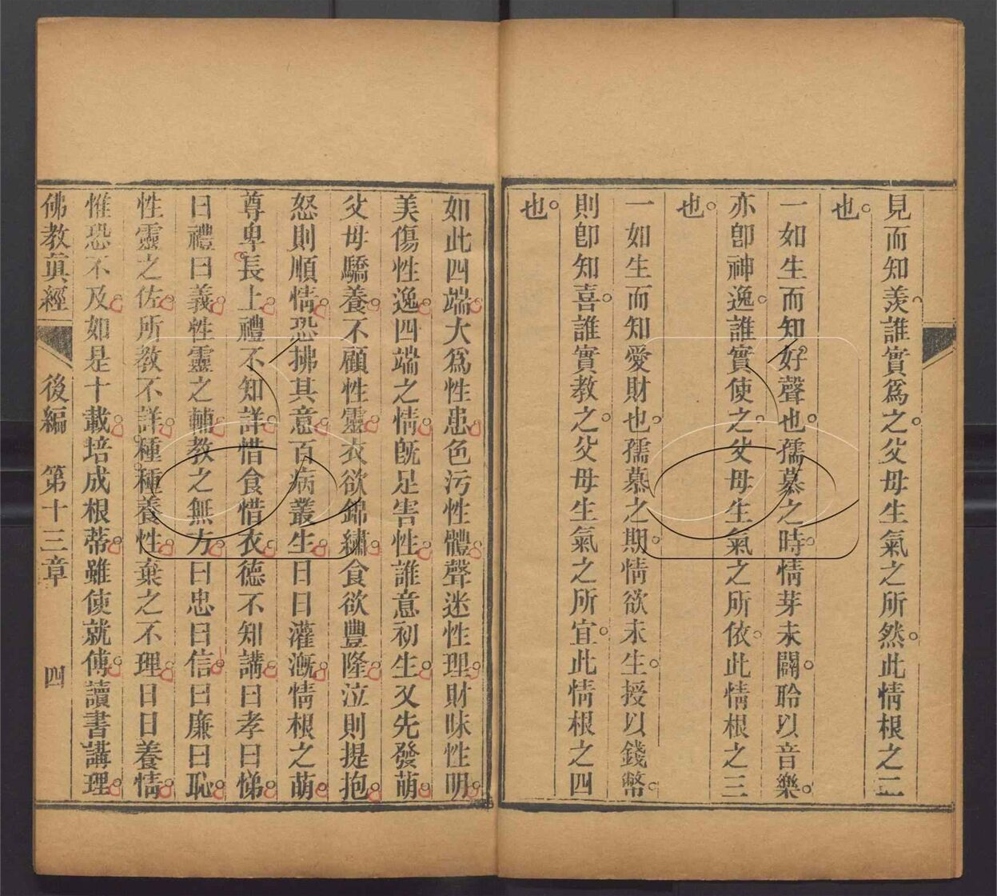 見而知羡誰實爲之父母生氣之所然此情根之二
也
一如生而知好聲也孺慕之時情芽未闢聆以音樂
亦卽神逸誰實使之父母生氣之所依此情根之三
也
一如生而知愛財也孺慕之期情欲未生授以錢幣
則卽知喜誰實教之父母生氣之所宜此情根之四
也
如此四端大爲性患色污性體聲迷性理財昧性明
美傷性逸四端之情旣足害性誰意初生又先發萌
父母驕養不顧性靈衣欲錦繡食欲豐隆泣則提抱
怒則順情恐拂其意百病叢生日日灌漑情根之萌
尊卑長上禮不知詳惜食惜衣德不知講曰孝曰悌
曰禮曰義性靈之輔教之無方曰忠曰信曰廉曰恥
性靈之佐所教不詳種種養性棄之不理日日養情
惟恐不及如是十載培成根蒂雖使就傅讀書講理
佛教眞經 後編 第十三章 四